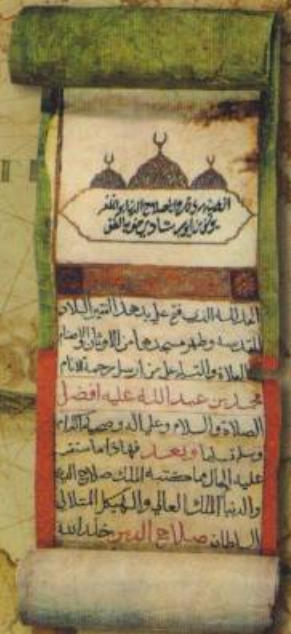 الحمد لله الذي فتح على يد هذا الفقير البلاد
المقدسة وطهر مسجدها من الأوثان والأصنام
والصلاة والسلام على من أرسل رحمة للأنام
محمد بن عبد الله عليه افضل
الصلاة والسلام وعلى اله وصحبه الكرام
وسلم وبعد فهذا ما استقر
عليه الحال مما كتبه الملك صلاح الدين
والدنيا الملك العالي والهيكل المتلالي
السلطان صلاح الدين خلد الله